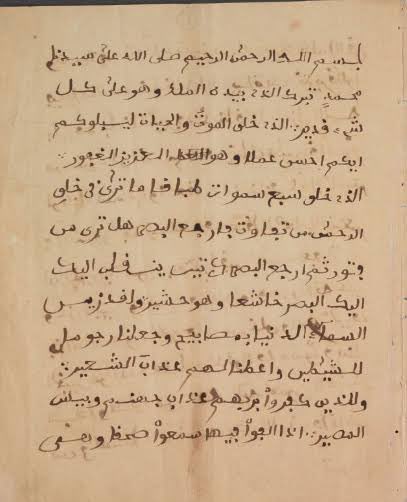 بسم الله الرحمن الرحيم صلى الله على سيدنا
محمد تبرك الذي بيده الملك وهو على كل
شيء قدير ∴ الذي خلق الموت والحياة ليبلوكم
ايكم احسن عملا وهو العزيز الغفور ∴
الذي خلق سبع سموات طباقا ما ترى في خلق
الرحمن من تفاوت فارجع البصر هل ترى من
فتور ثم ارجع البصر ينقلب اليك
اليك البصر خاشعا وهو حشير ولقد زين
السماء الدنيا بمصابيح وجعلنا رجوما
للشيطين لهم عذاب الشعير ∴
وللذين كفروا بربهم عذاب جهنم وبيس
المصير ∴ اذا القوا فيها سمعوا